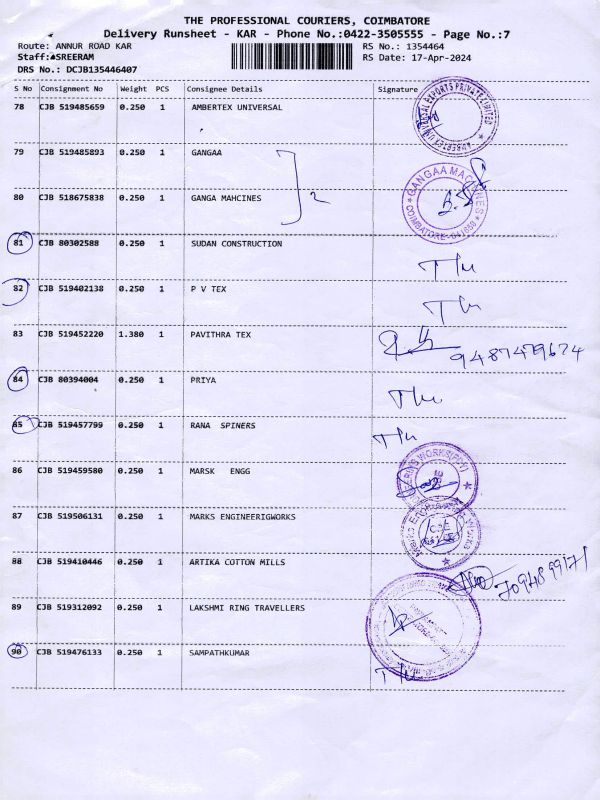 THE PROFESSIONAL COURIERS, COIMBATORE
Delivery Runsheet - KAR - Phone No.:0422-3505555 - Page No.:7
Route: ANNUR ROAD KAR RS No.: 1354464
Staff: SREERAM RS Date: 17-Apr-2024
DRS No.: DCJB135446407
S No Consignment No Weight PCS Consignee Details Signature
78 CJB 519485659 0.250 1 AMBERTEX UNIVERSAL
AMBERTEX UNIVERSAL EXPORTS PRIVATE LIMITED
79 CJB 519485893 0.250 1 GANGAA
2
80 CJB 518675838 0.250 1 GANGA MAHCINES
GANGAA MACHINES
COIMBATORE
81 CJB 80302588 0.250 1 SUDAN CONSTRUCTION
82 CJB 519402138 0.250 1 P V TEX
83 CJB 519452220 1.380 1 PAVITHRA TEX
9487479674
84 CJB 80394004 0.250 1 PRIYA
85 CJB 519457799 0.250 1 RANA SPINERS
86 CJB 519459580 0.250 1 MARSK ENGG
87 CJB 519506131 0.250 1 MARKS ENGINEERIGWORKS
88 CJB 519410446 0.250 1 ARTIKA COTTON MILLS
89 CJB 519312092 0.250 1 LAKSHMI RING TRAVELLERS
90 CJB 519476133 0.250 1 SAMPATHKUMAR